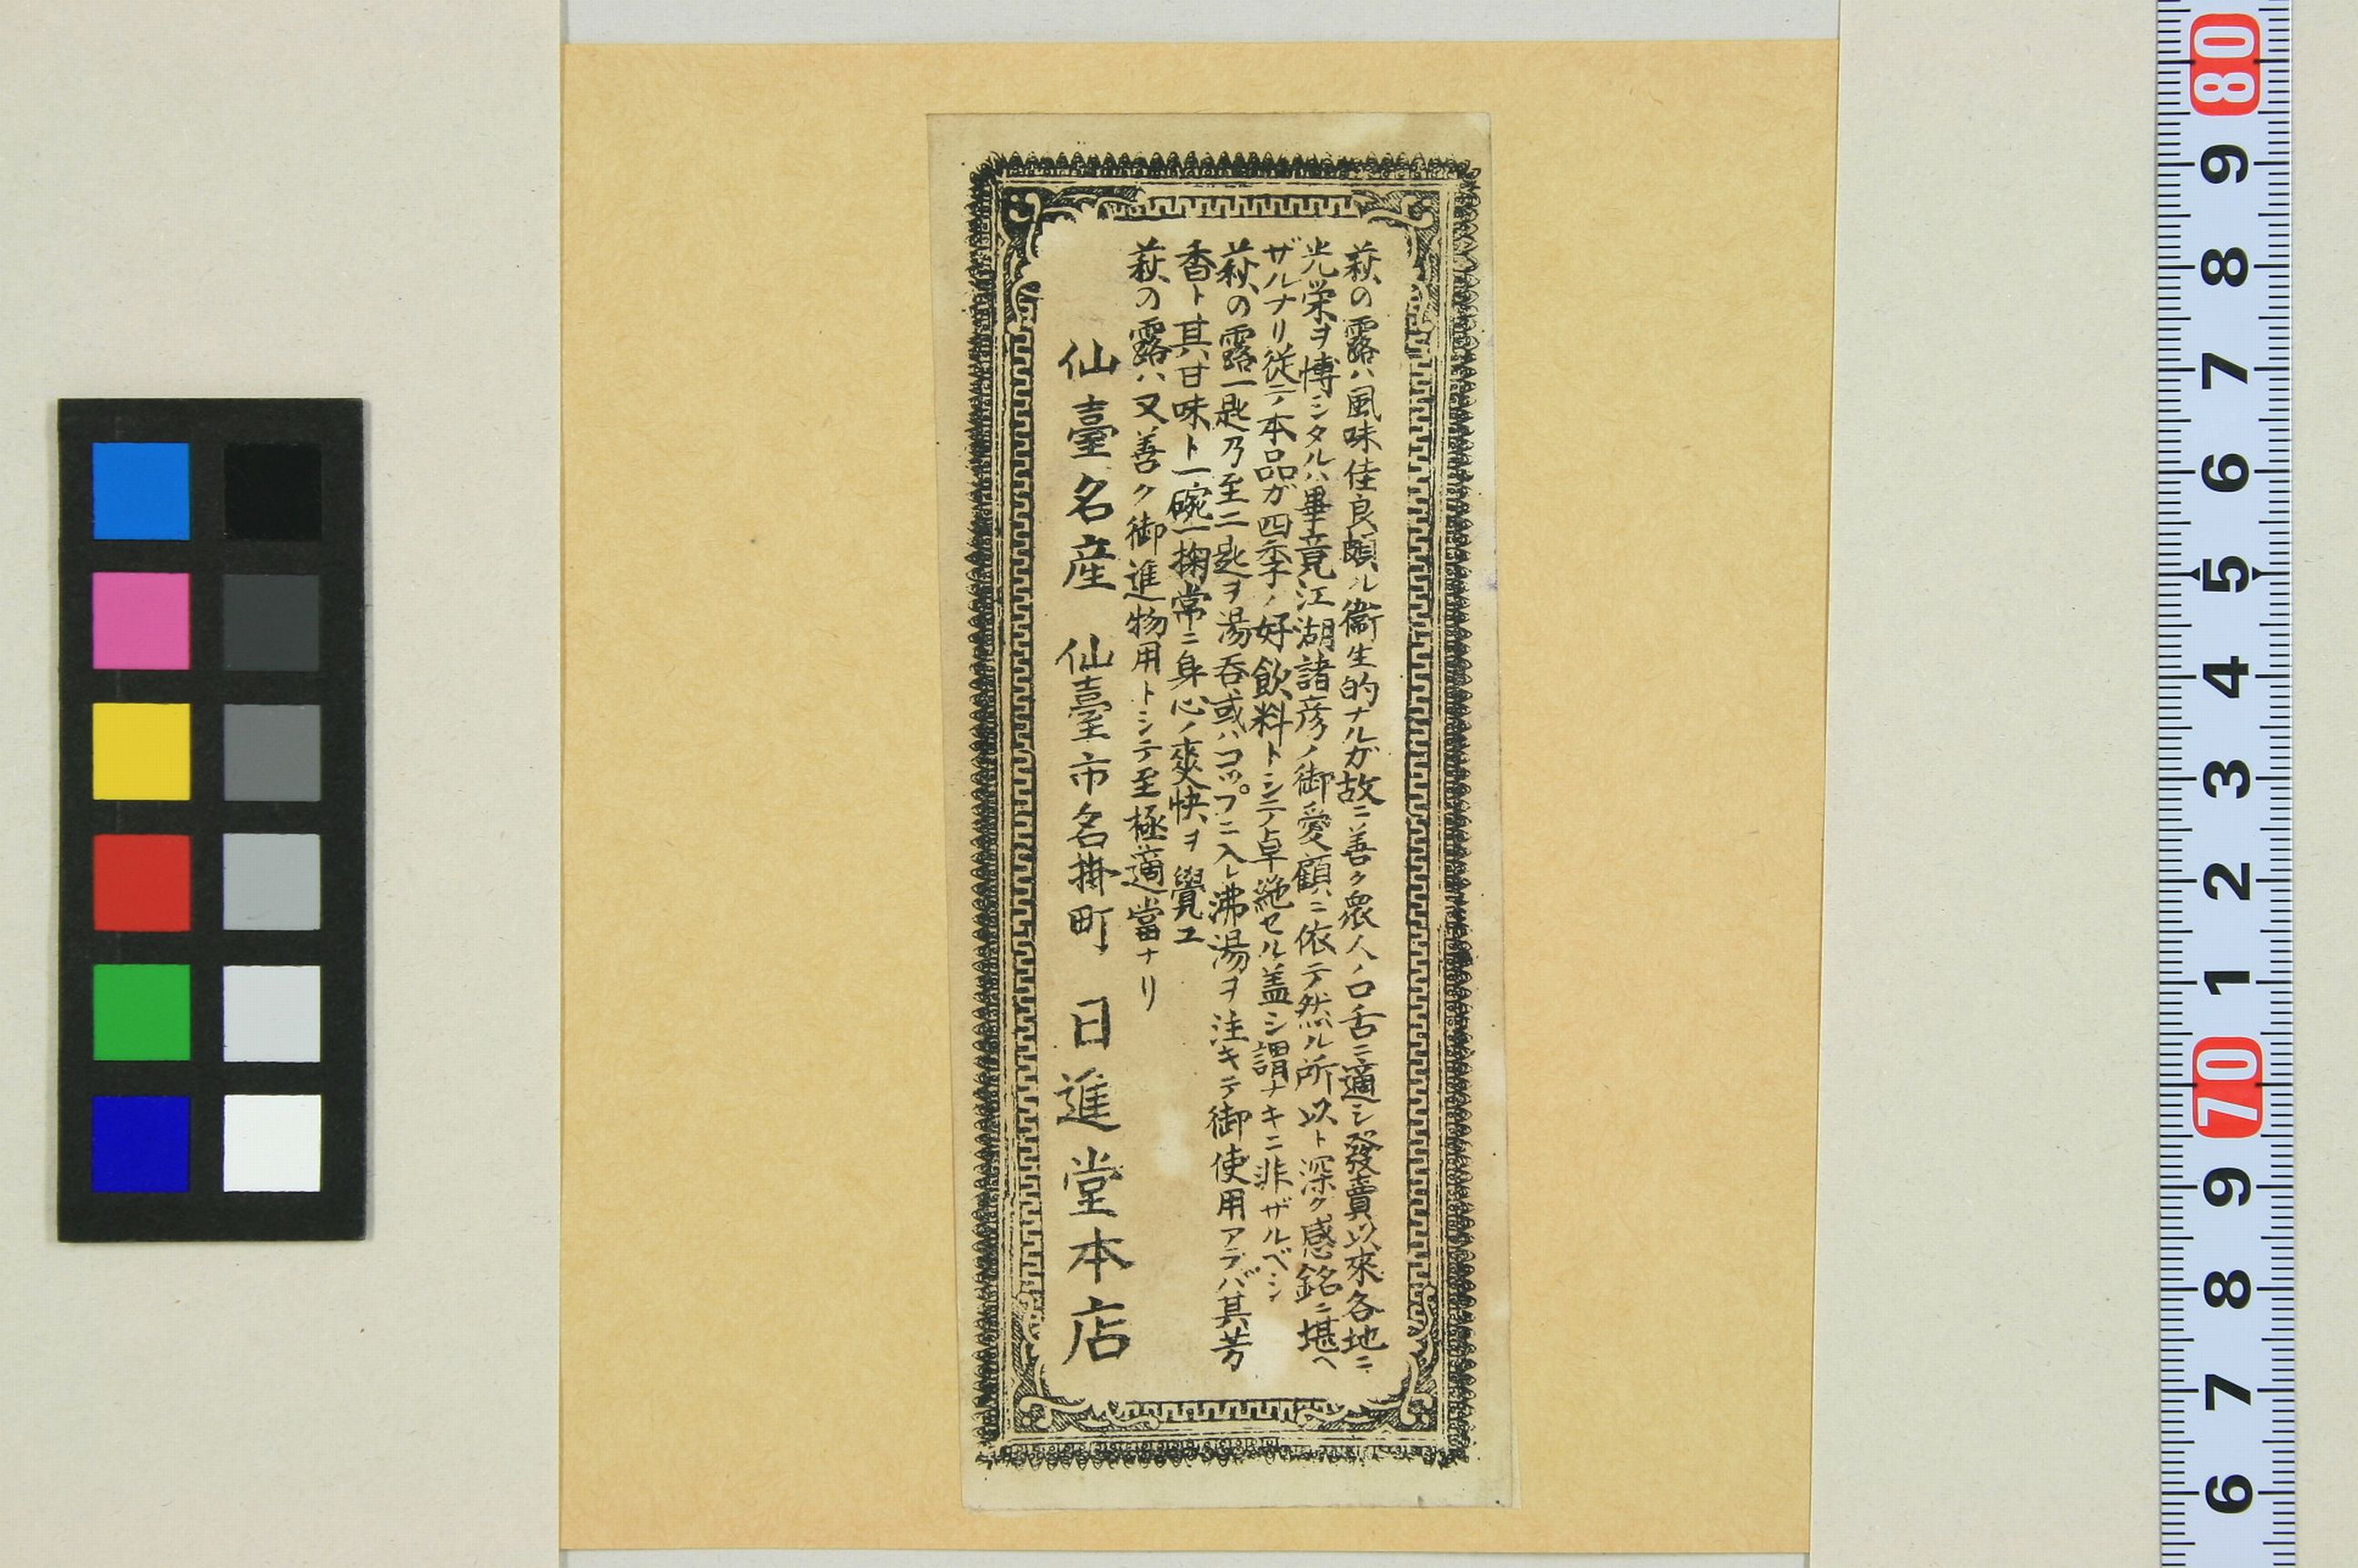 萩の露ハ風味佳良頗ル衞生的ナルガ故ニ善ク衆人ノ口舌ニ適シ發賣以來各地ニ
光栄ヲ博シタルハ畢竟江湖諸彦ノ御愛顧ニ依テ然ル所以ト深ク感銘ニ堪ヘ
ザルナリ従テ本品ガ四季ノ好飲料トシテ卓絶セル盖シ謂ナキニ非ザルベシ
萩の露一匙乃至二匙ヲ湯呑或ハコップニ入レ沸湯ヲ注キテ御使用アラバ其芳
香ト其甘味ト一碗一掬常ニ身心ノ爽快ヲ覺ユ
萩の露ハ又善ク御進物用トシテ至極適當ナリ
仙臺名産 仙臺市名掛町 日進堂本店
80
9
8
7
6
5
4
3
2
1
70
9
8
7
6